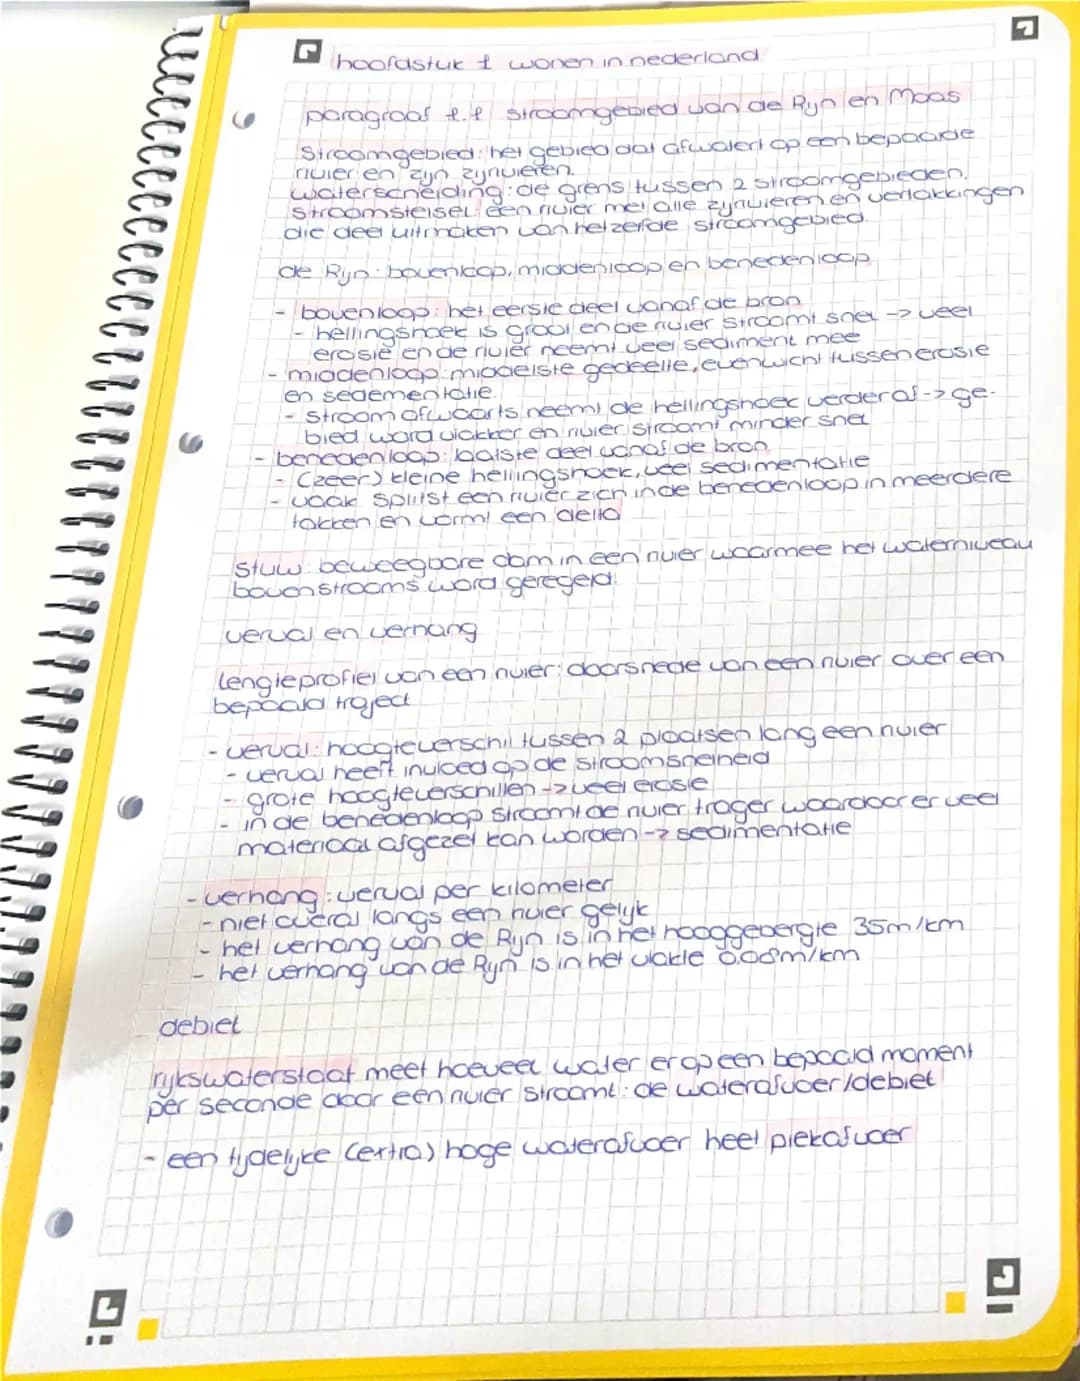 hoofdstuk 1 wonen in nederland
paragraaf 1.1 stroomgebied van de Rijn en Maas
Stroomgebied: het gebied dat afwatert op een bepaalde
rivier en zijn zijrivieren.
waterscheiding: de grens tussen 2 stroomgebieden.
stroomstelsel: een rivier met alle zijrivieren en vertakkingen
die deel uitmaken van hetzelfde stroomgebied.
de Rijn: bovenloop, middenloop en benedenloop
- bovenloop: het eerste deel vanaf de bron
- hellingshoek is groot en de rivier stroomt snel -> veel
erosie en de rivier neemt veel sediment mee
- middenloop: middelste gedeelte, evenwicht tussen erosie
en sedementatie.
- stroomafwaarts neemt de hellingshoek verder af -> ge-
bied word vlakker en rivier stroomt minder snel
- benedenloop: laatste deel vanaf de bron
- (zeer) kleine hellingshoek, veel sedimentatie
- vaak splitst een rivier zich in de benedenloop in meerdere
takken en vormt een delta
stuw: beweegbare dam in een rivier waarmee het waterniveau
bovenstrooms word geregeld.
verval en verhang
lengteprofiel van een rivier: doorsnede van een rivier over een
bepaald traject
- verval: hoogteverschil tussen 2 plaatsen lang een rivier
- verval heeft invloed op de stroomsnelheid
- grote hoogteverschillen -> veel erosie
- in de benedenloop stroomt de rivier trager waardoor er veel
materiaal afgezet kan worden -> sedimentatie
- verhang: verval per kilometer
- niet overal langs een rivier gelijk
- het verhang van de Rijn is in het hooggebergte 35m/km
- het verhang van de Rijn is in het vlakke 0.08m/km
debiet
rijkswaterstaat meet hoeveel water er op een bepaald moment
per seconde door een rivier stroomt: de waterafvoer/debiet
- een tijdelijke (extra) hoge waterafvoer heet piekafvoer